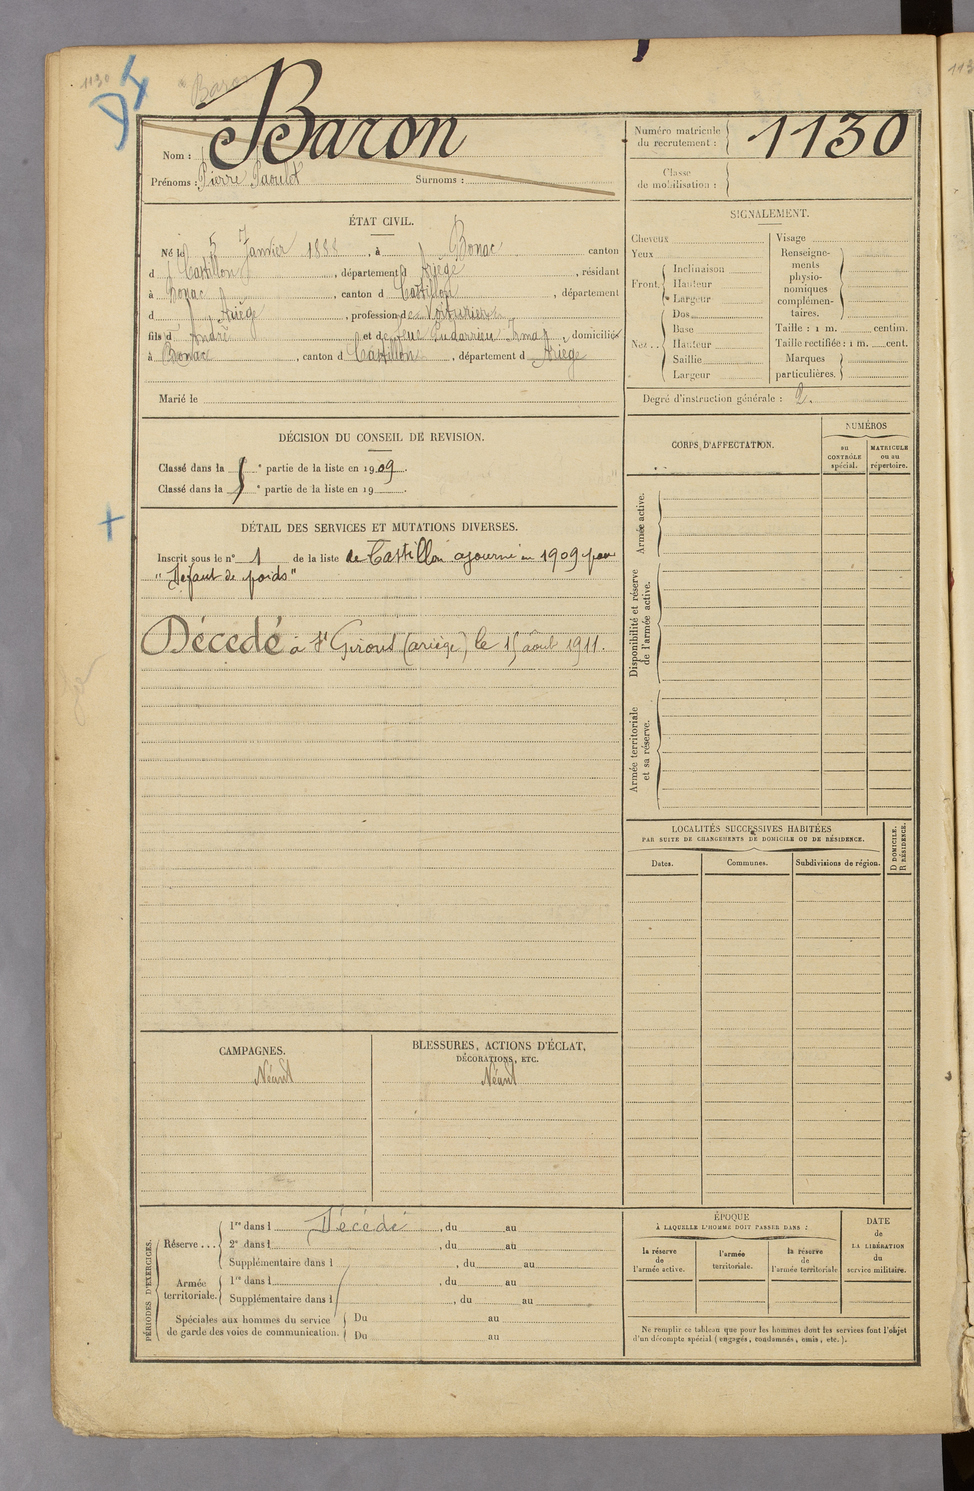 1130
Baron
Baron
Nom :
Prénoms : Pierre Paoulot Surnoms :
Numéro matricule
du recrutement : 1130
Classe
de mobilisation :
ÉTAT CIVIL.
Né le 5 Janvier 1888, à Bonac canton
d Castillon, département d Ariège, résidant
à Bonac, canton d Castillon, département
d Ariège, profession de Voiturier
fils d André et de feue Irma, domiciliés
à Bonac, canton d Castillon, département d Ariège
Marié le
SIGNALEMENT.
Cheveux
Yeux
Front. Inclinaison
Hauteur
Largeur
Nez .. Dos
Base
Hauteur
Saillie
Largeur
Visage
Renseigne-
ments
physio-
nomiques
complémen-
taires.
Taille : 1 m. centim.
Taille rectifiée : 1 m. cent.
Marques
particulières.
Degré d'instruction générale : 2.
DÉCISION DU CONSEIL DE REVISION.
Classé dans la 5e partie de la liste en 1909.
Classé dans la e partie de la liste en 19
DÉTAIL DES SERVICES ET MUTATIONS DIVERSES.
Inscrit sous le n° 1 de la liste de Castillon ajourné en 1909 pour
"Défaut de poids"
Décédé à St Girons (ariège) le 15 août 1911.
CORPS D'AFFECTATION.
NUMÉROS
au
CONTRÔLE
spécial.
MATRICULE
ou au
répertoire.
Armée active.
Disponibilité et réserve
de l'armée active.
Armée territoriale
et sa réserve.
LOCALITÉS SUCCESSIVES HABITÉES
PAR SUITE DE CHANGEMENTS DE DOMICILE OU DE RÉSIDENCE.
Dates.
Communes.
Subdivisions de région.
D DOMICILE.
R RÉSIDENCE.
CAMPAGNES.
Néant
BLESSURES, ACTIONS D'ÉCLAT,
DÉCORATIONS, ETC.
Néant
PÉRIODES D'EXERCICES.
Réserve ... 1re dans l Décédé, du au
2e dans l , du au
Supplémentaire dans l , du au
Armée
territoriale. 1re dans l , du au
Supplémentaire dans l , du au
Spéciales aux hommes du service
de garde des voies de communication. Du au
Du au
ÉPOQUE
À LAQUELLE L'HOMME DOIT PASSER DANS :
la réserve
de
l'armée active.
l'armée
territoriale.
la réserve
de
l'armée territoriale
DATE
de
LA LIBÉRATION
du
service militaire.
Ne remplir ce tableau que pour les hommes dont les services font l'objet
d'un décompte spécial (engagés, condamnés, omis, etc.).